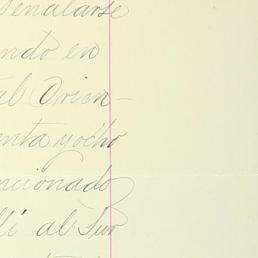 señalarse
ndo en
al Orien-
enta y ocho
ncionado
lí al Sur